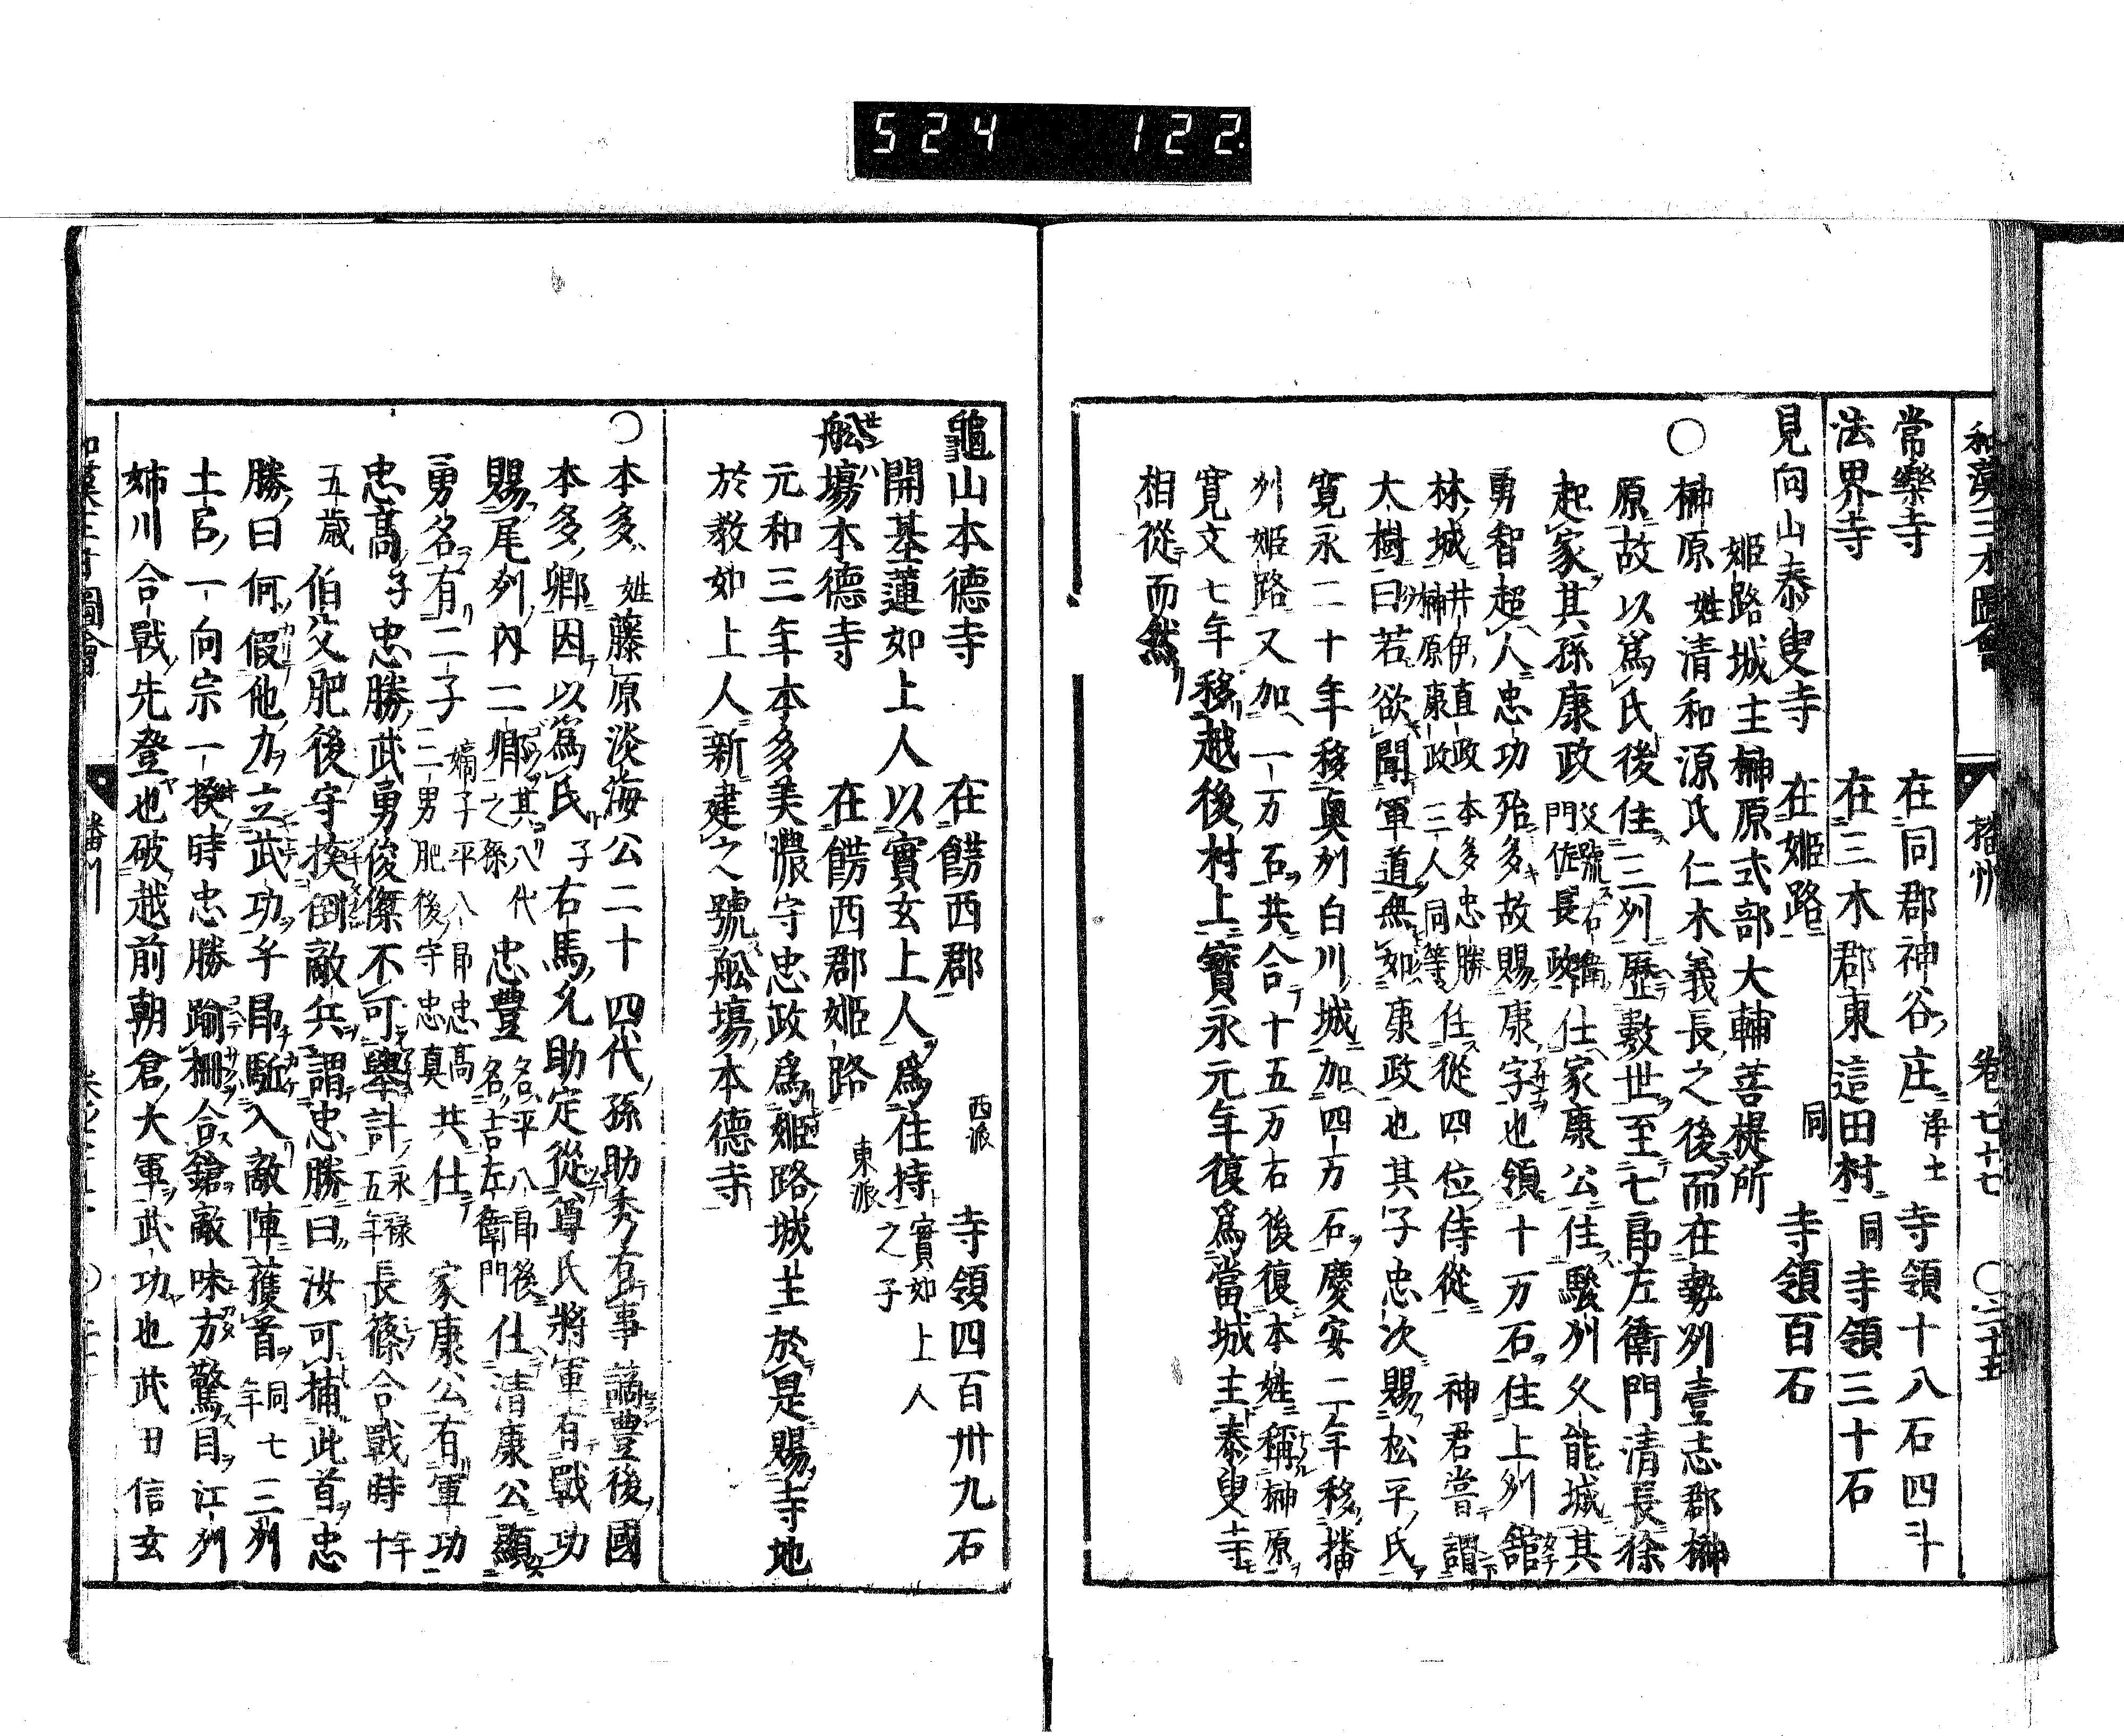 524 122
和漢三才圖會 播州 卷七十七 〇二十五
常樂寺 在同郡神谷庄 淨土 寺領十八石四斗
法界寺 在三木郡東這田村 同 寺領三十石
見向山泰叟寺 在姬路 同 寺領百石
姬路城主榊原式部大輔菩提所
〇榊原 姓清和源氏仁木義長之後而在勢刕壹志郡榊
原故以爲氏後住三刕歷數世至七郎左衛門清長徐
起家其孫康政 父號右衛門佐長政 仕家康公住駿刕久能城其
勇智超人忠功殆多故賜康字也領十万石住上刕舘
林城 井伊直政 本多忠勝 榊原康政 三人同等 任從四位侍從 神君嘗謂
大樹曰若欲聞軍道無如康政也其子忠次賜松平氏
寬永二十年移奥刕白川城加四万石慶安二年移播
刕姬路又加一万石共合十五万石後復本姓稱榊原
寬文七年移越後村上寶永元年復爲當城主泰叟寺
相從而然
龜山本德寺 在餝西郡 西派 寺領四百卅九石
開基蓮如上人以實玄上人爲住持 實如上人之子
舩塲本德寺 在餝西郡姬路 東派
元和三年本多美濃守忠政爲姬路城主於是賜寺地
於教如上人新建之號舩塲本德寺
〇本多 姓藤原淡海公二十四代孫助秀有事謫豊後國
本多鄉因以爲氏 子右馬允助定從尊氏將軍有戰功
賜尾刕内二鄉 其八代之孫 忠豊 名平八郎後名吉左衛門 仕清康公顯
勇名有二子 嫡子平八郎忠高 二男肥後守忠真 共仕 家康公有軍功
忠高子忠勝武勇俊傑不可舉計 永禄五年 長篠合戰時年十
五歲 伯父肥後守挨倒敵兵謂忠勝曰汝可捕此首忠
勝曰何假他力立武功乎即駈入敵陣獲首 同七年 三州
土呂一向宗一揆時忠勝踰柵合鎗敵味方驚目江州
姉川合戰先登也破越前朝倉大軍武功也武田信玄